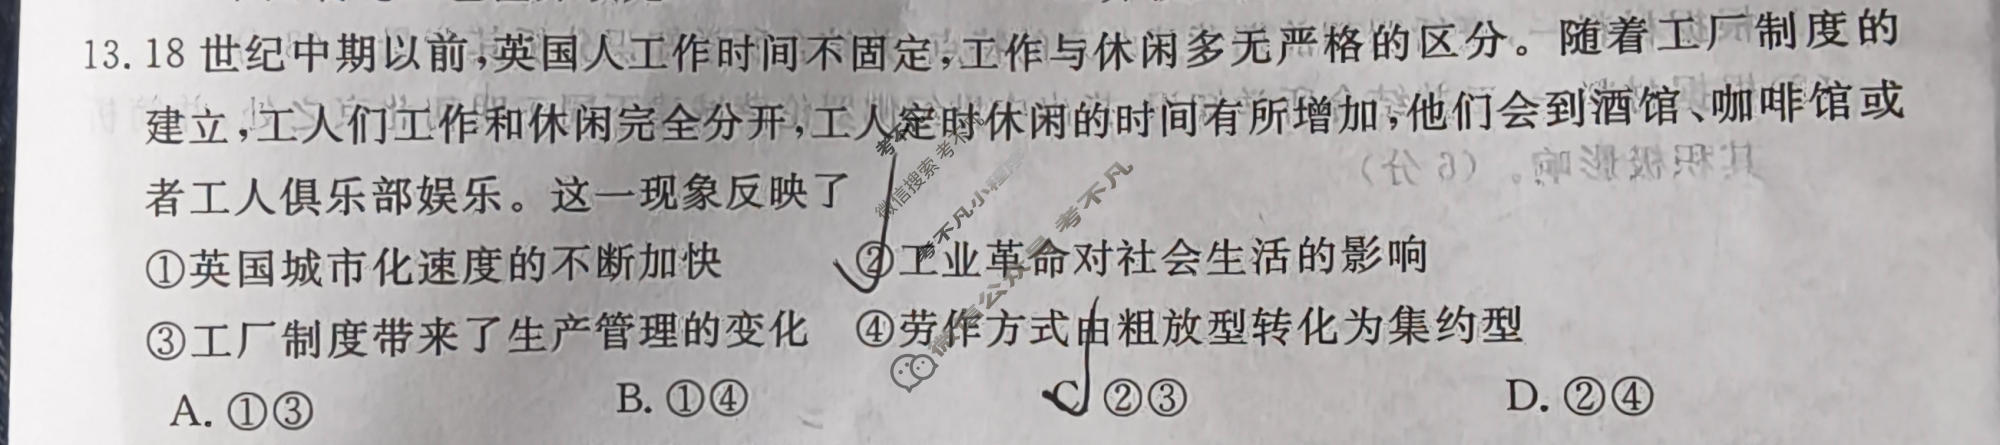 13. 18 世纪中期以前,英国人工作时间不固定,工作与休闲多无严格的区分。随着工厂制度的
建立,工人们工作和休闲完全分开,工人定时休闲的时间有所增加,他们会到酒馆、咖啡馆或
者工人俱乐部娱乐。这一现象反映了
①英国城市化速度的不断加快 ②工业革命对社会生活的影响
③工厂制度带来了生产管理的变化 ④劳作方式由粗放型转化为集约型
A. ①③ B. ①④ C. ②③ D. ②④
微信搜索 考不凡小程序
微信公众号 考不凡